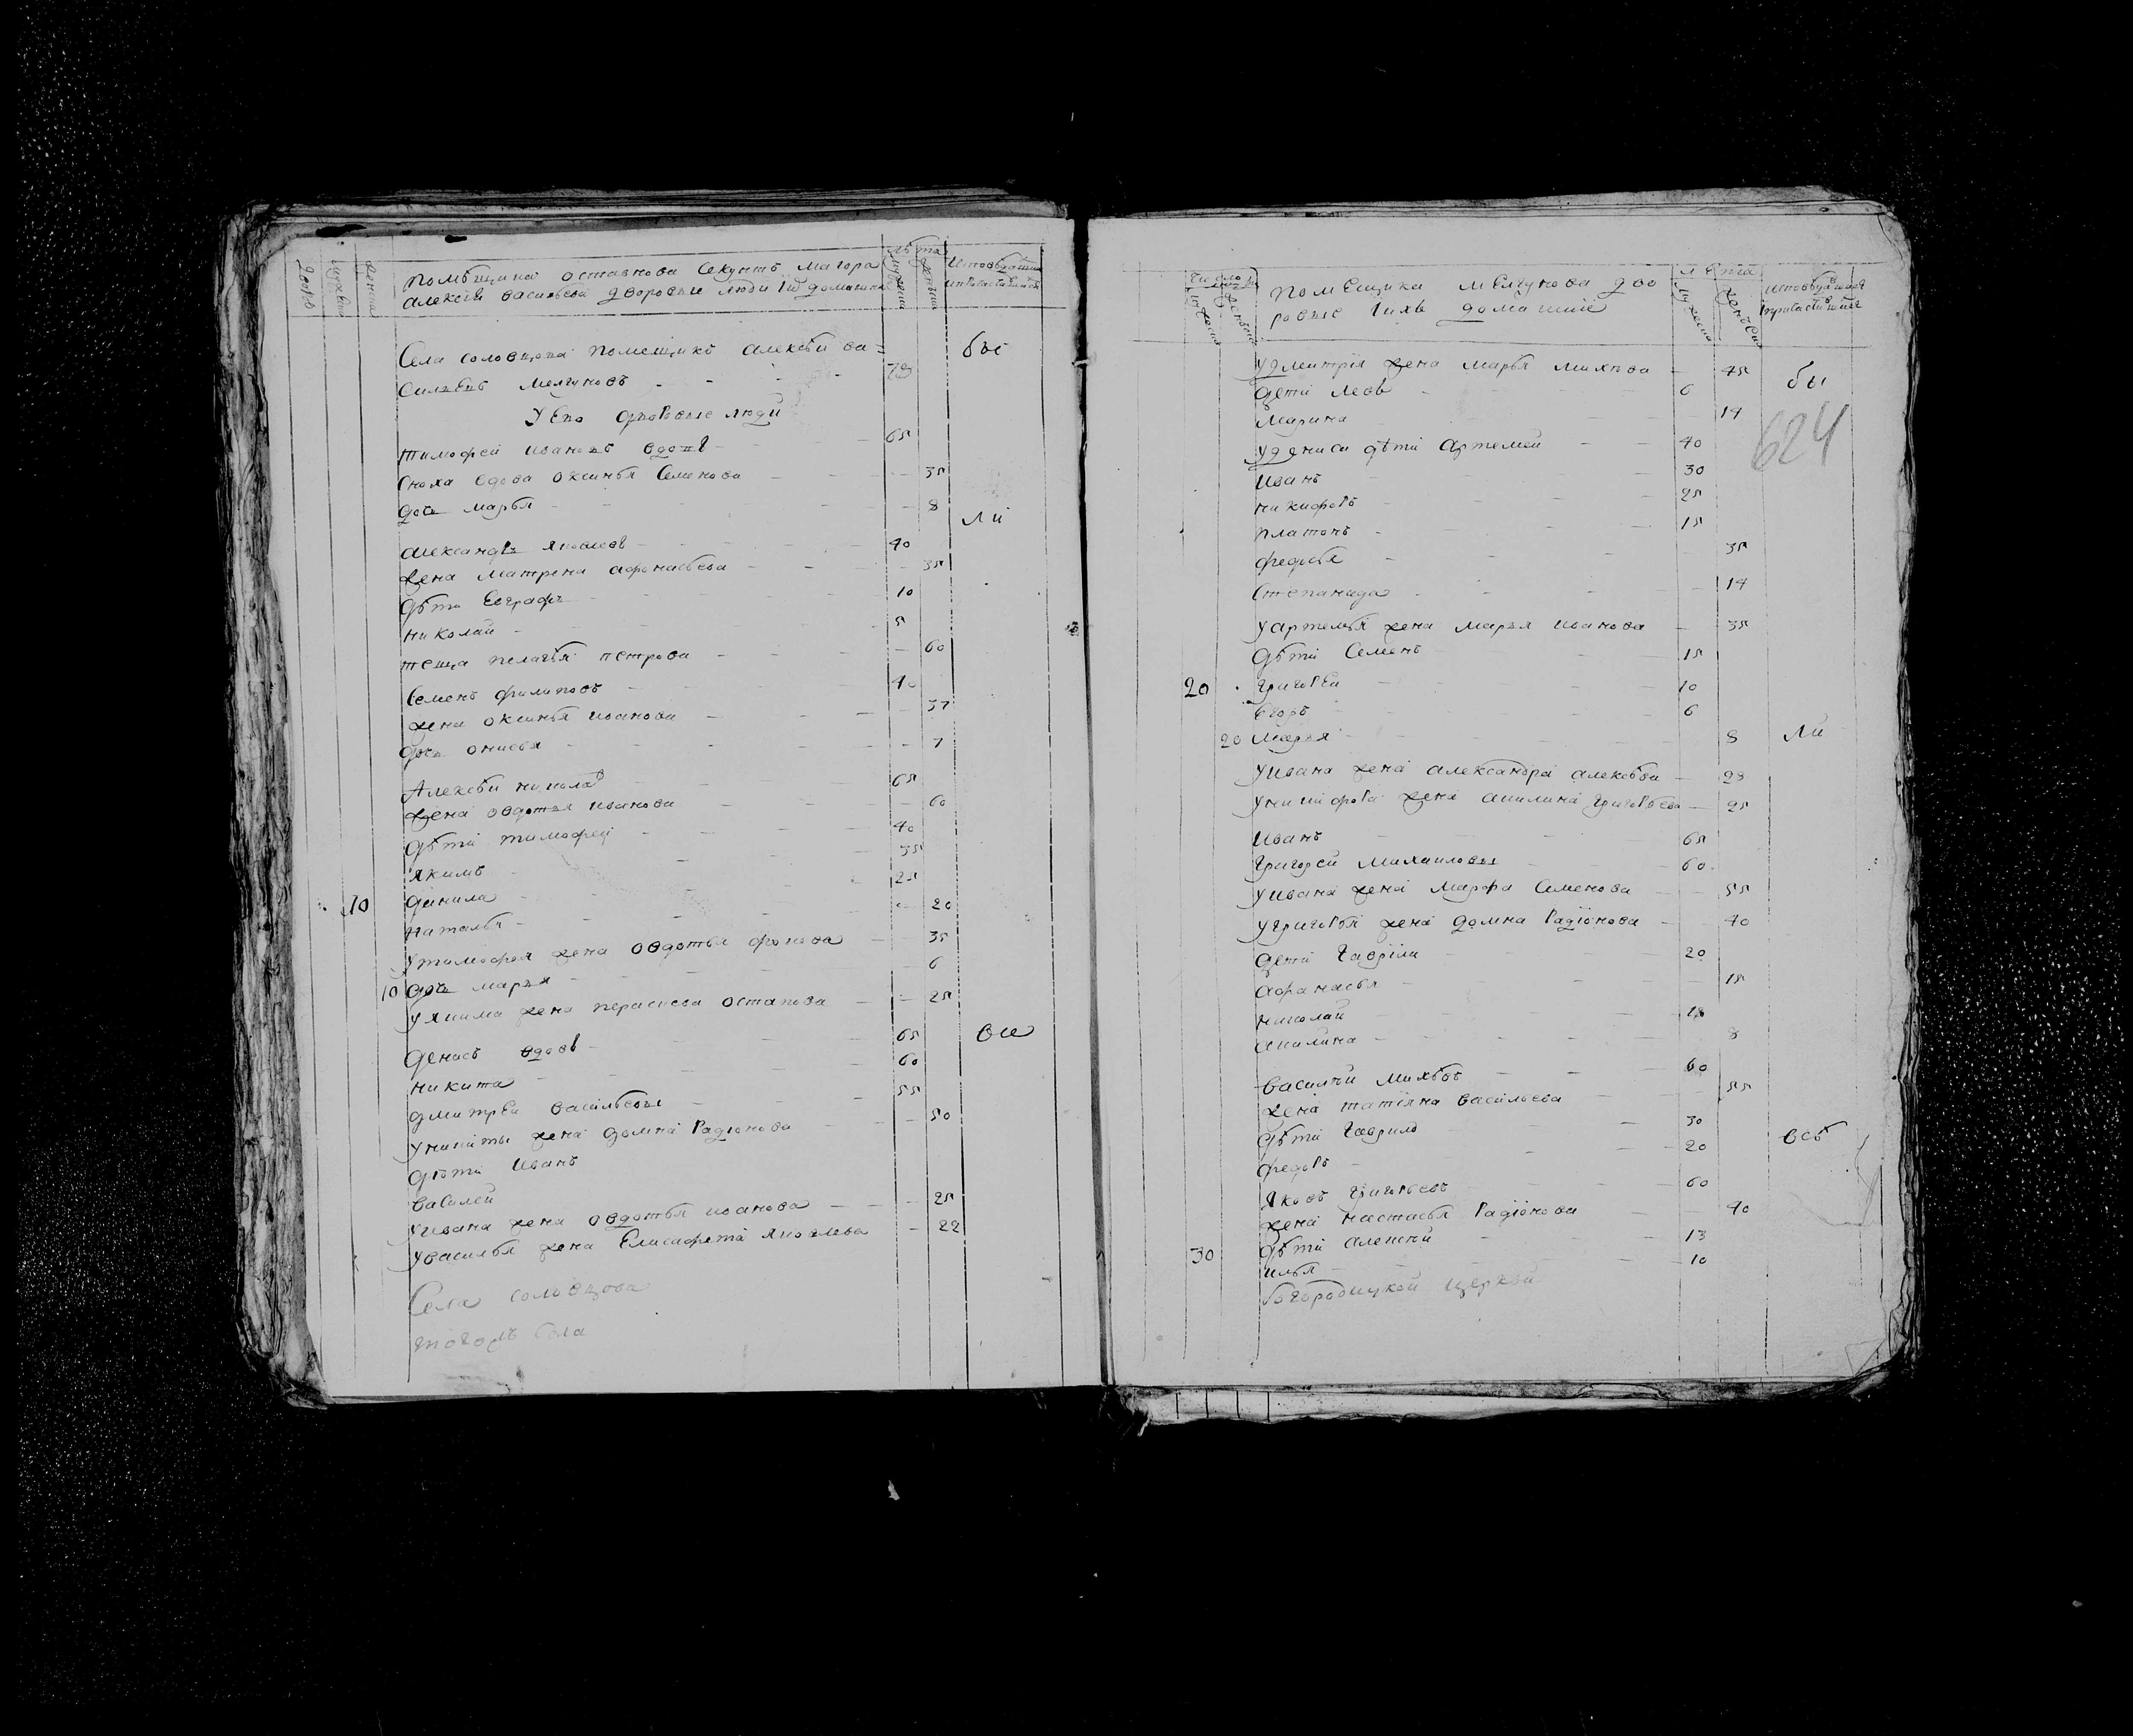 дворов
мужеска
женска
помѣщика оставнова секунтъ маиора
алексея васильева дворовые люди їи домашни
лѣта
мужеска
женска
исповѣдавшихся
Села соловцова помещикъ алексѣй ва=
бы
сильевъ мелгуновъ
У Его дворовые люди
тимофей ивановъ вдовъ 65
сноха вдова оксинья семенова 35
дочь марья 8
ли
александръ яковлевъ 40
жена матрена афонасьева 35
дѣти Евграфъ 10
николай 5
теща пелагѣя петрова 60
семенъ филиповъ 40
жена оксинья иванова 37
дочь онисья 7
Алексѣй николаевъ 65
жена овдотья иванова 60
дѣти тимофей 40
якимъ 35
10 данила 25
наталья 20
у тимофея жена овдотья фролова 35
10 дочь марья 6
у якима жена перасковья остапова 25
денисъ вдовъ 65
никита 60
дмитрей васильевы 55
у никиты жена домна радионова 50
дѣти иванъ
василей
у ивана жена овдотья иванова 25
у василья жена Елисафета яковлева 22
Села соловцова
тогожъ села
число
мужеска
помещика мелгунова дво
ровые їихъ домашнїе
лета
мужеска
исповѣдавшихся
у дмитрїя жена марья михѣева 45
бы
дети левъ 6
марина 14
624
у дениса дѣти артемей 40
иванъ 30
никифоръ 25
платонъ 15
федосья 35
степанида 14
у артемья жена марья иванова 35
дѣти семенъ 15
20 григорей 10
егоръ 6
20 марья 8
ли
у ивана жена александра алексѣева 28
у никифора жена акилина григорьева 25
иванъ 65
григорей михаиловы 60
у ивана жена марфа семенова 55
у григорья жена домна радїонова 40
дети гаврїла 20
афанасья 15
николай
акилина 8
василѣй михѣевъ 60
жена татїяна васильева 55
дѣти гаврило 30
всѣ
федоръ 20
яковъ григорьевъ 60
жена настасья радїонова 40
30 дѣти алексѣй 13
илья 10
богородицкой церкви